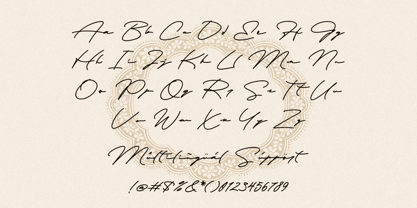 Aa Bb Cc Dd Ee Ff Gg
Hh Ii Jj Kk Ll Mm Nn
Oo Pp Qq Rr Ss Tt Uu
Vv Ww Xx Yy Zz
Multilingual Support
!@#$%&*()0123456789